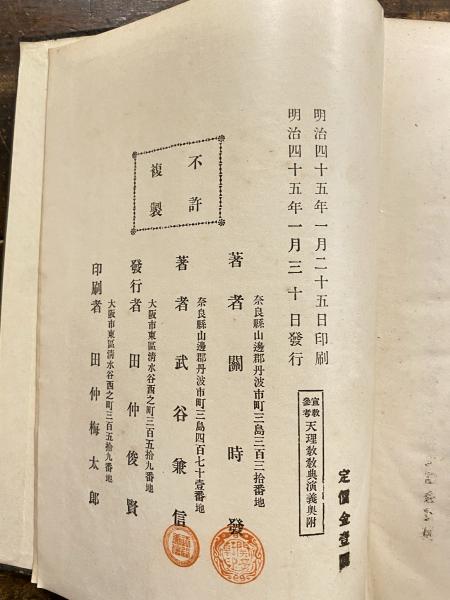 定價金壹圓
宣教參考 天理教教典演義奧附
明治四十五年一月二十五日印刷
明治四十五年一月三十日發行
不許
複製
奈良縣山邊郡丹波市町三島三百三拾番地
著者 關時發
奈良縣山邊郡丹波市町三島四百七十壹番地
著者 武谷兼信
大阪市東區清水谷西之町三百五拾九番地
發行者 田仲俊賢
大阪市東區清水谷西之町三百五拾九番地
印刷者 田仲梅太郎